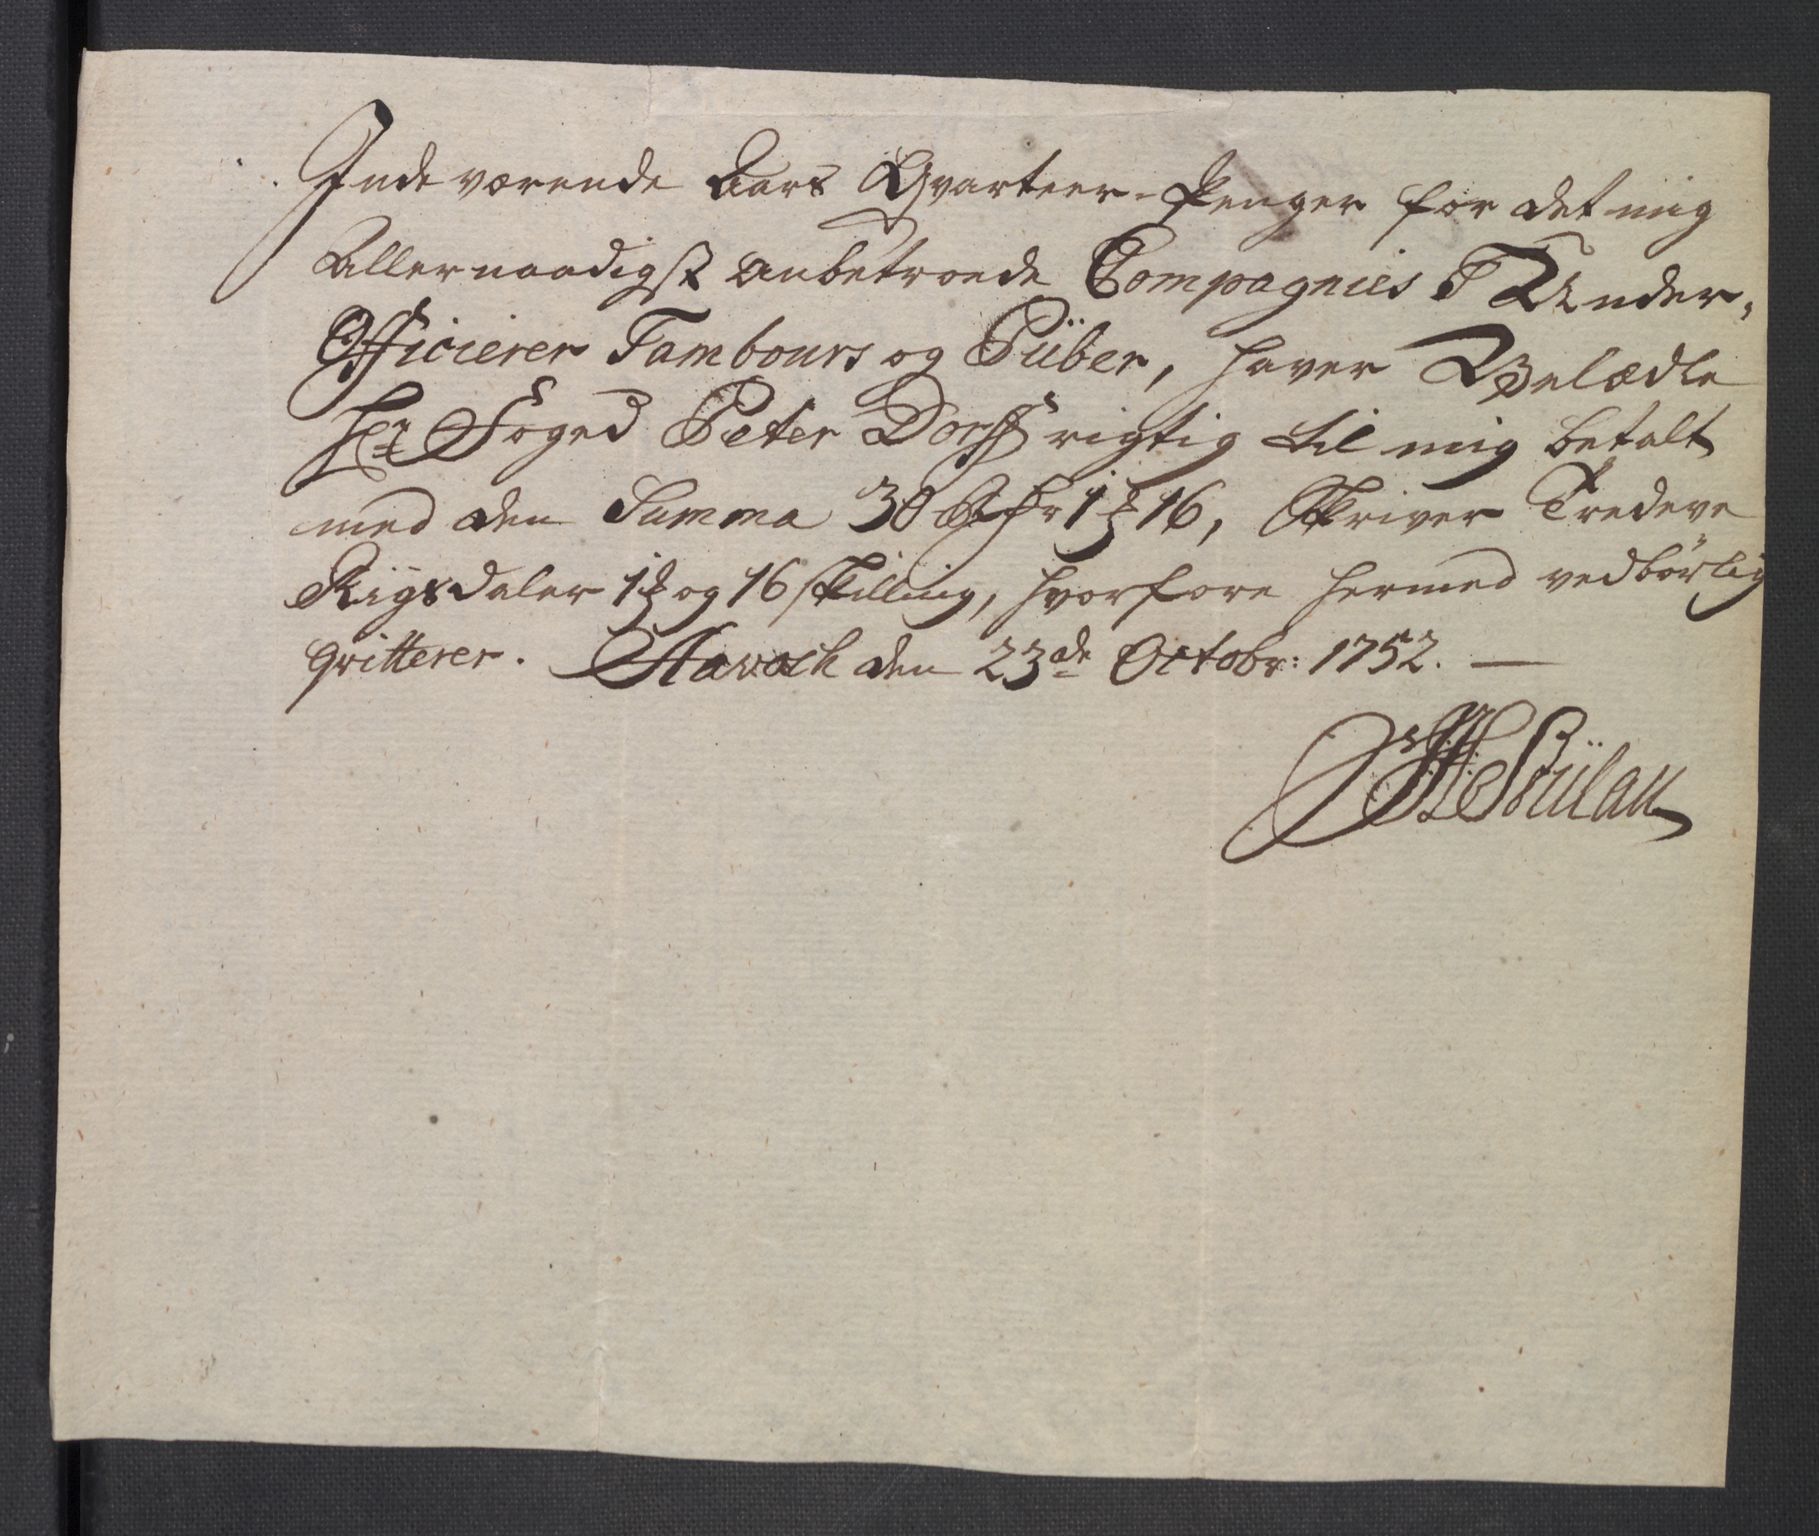 Indeværende Aars Qvarteer-Penger for det mig
Allernaadigst anbetroede Compagnies Under-
Officierer Tambours og Piiber, haver Velædle
Hr Foged Peter Dorff rigtig til mig betalt
med den Summa 30 Rdr 1 16, Skriver Tredeve
Rigsdaler 1 og 16 skilling, hvorfore hermed vedbørlig
qvitterer. den 23de Octobr: 1752. —
Bülau